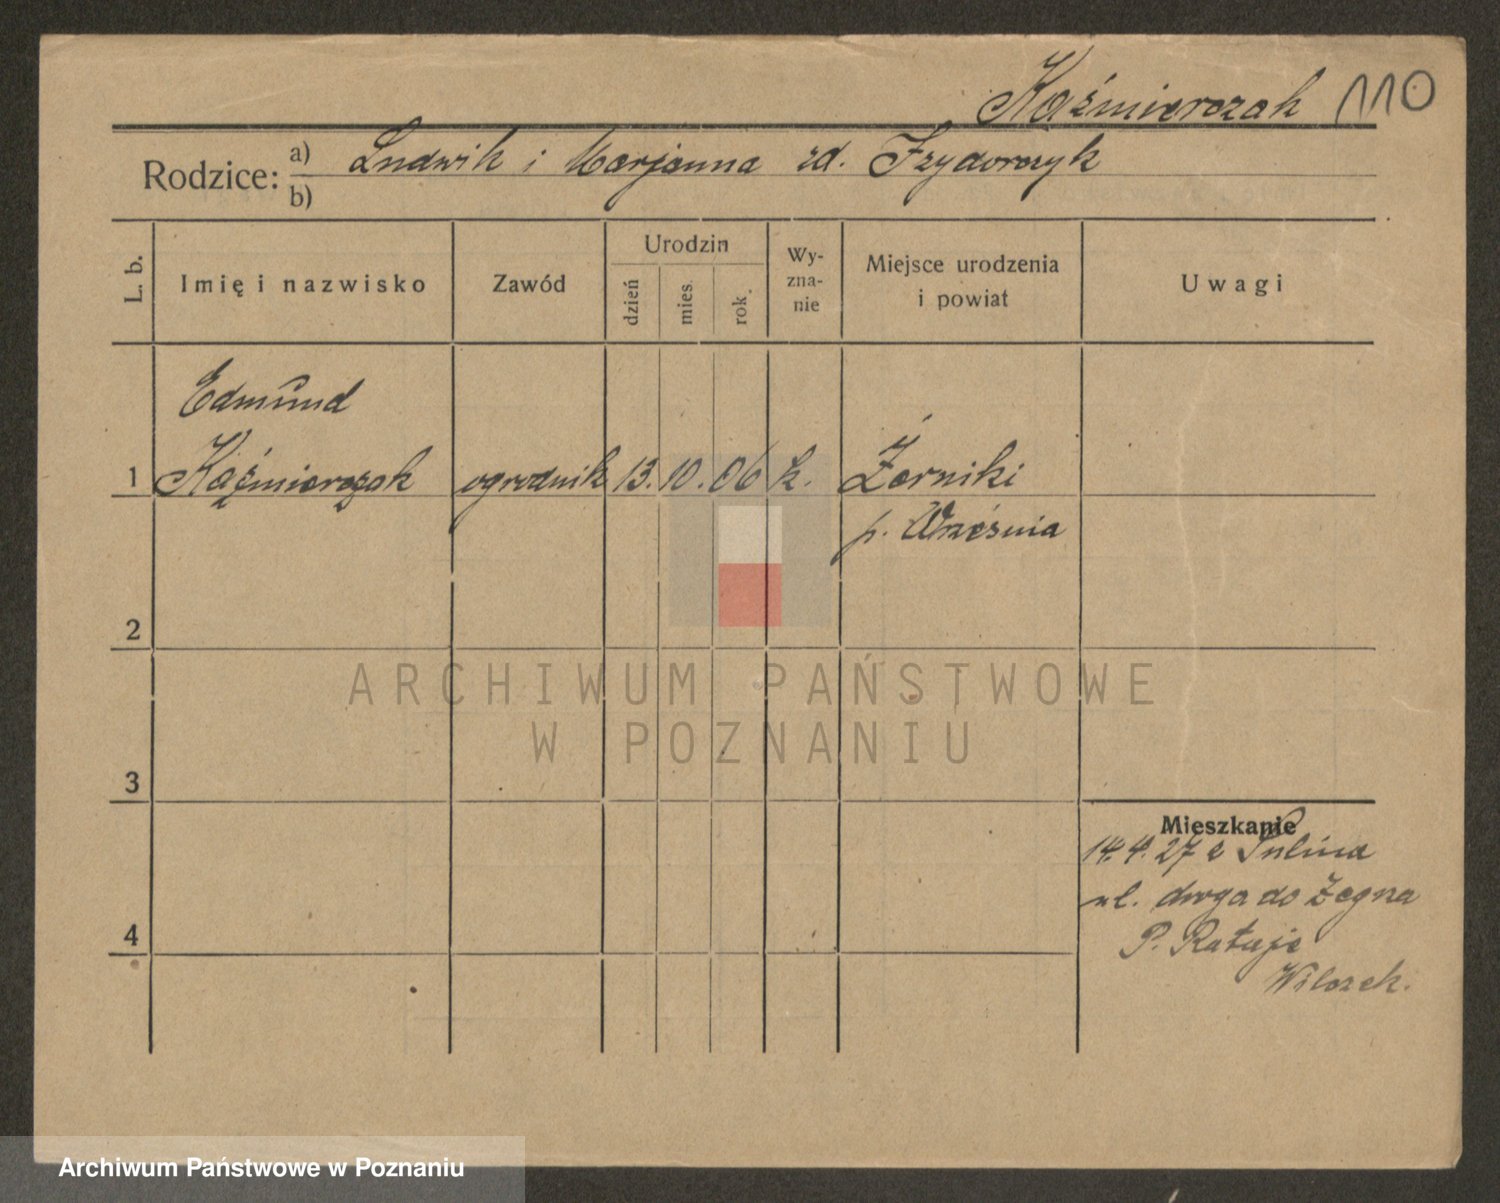 Kaźmierczak 110
Rodzice: a) Ludwik i Marjanna zd. Frydorczyk
b)
L. b. Imię i nazwisko Zawód Urodzin dzień mies. rok. Wy-zna-nie Miejsce urodzenia i powiat Uwagi
Edmund
1 Kaźmierczak ogrodnik 13. 10. 06 k. Żerniki
p. Września
2
ARCHIWUM PAŃSTWOWE
W POZNANIU
3
Mieszkanie
14.4.27 z
ul. droga do Żegrza
4 P. Rataje
Wilczek.
Archiwum Państwowe w Poznaniu